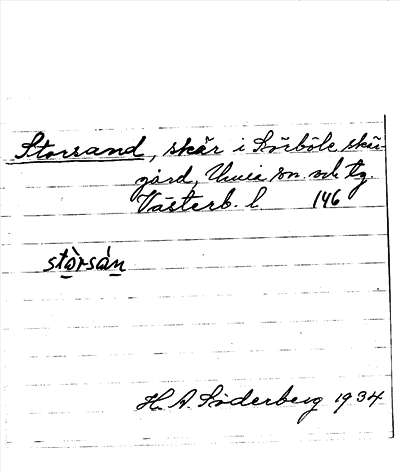 Storsand, skär i Sörböle skär-
gård, Umeå sn. och tg.
Västerb. l 146
stòrsán
H. A. Söderberg 1934